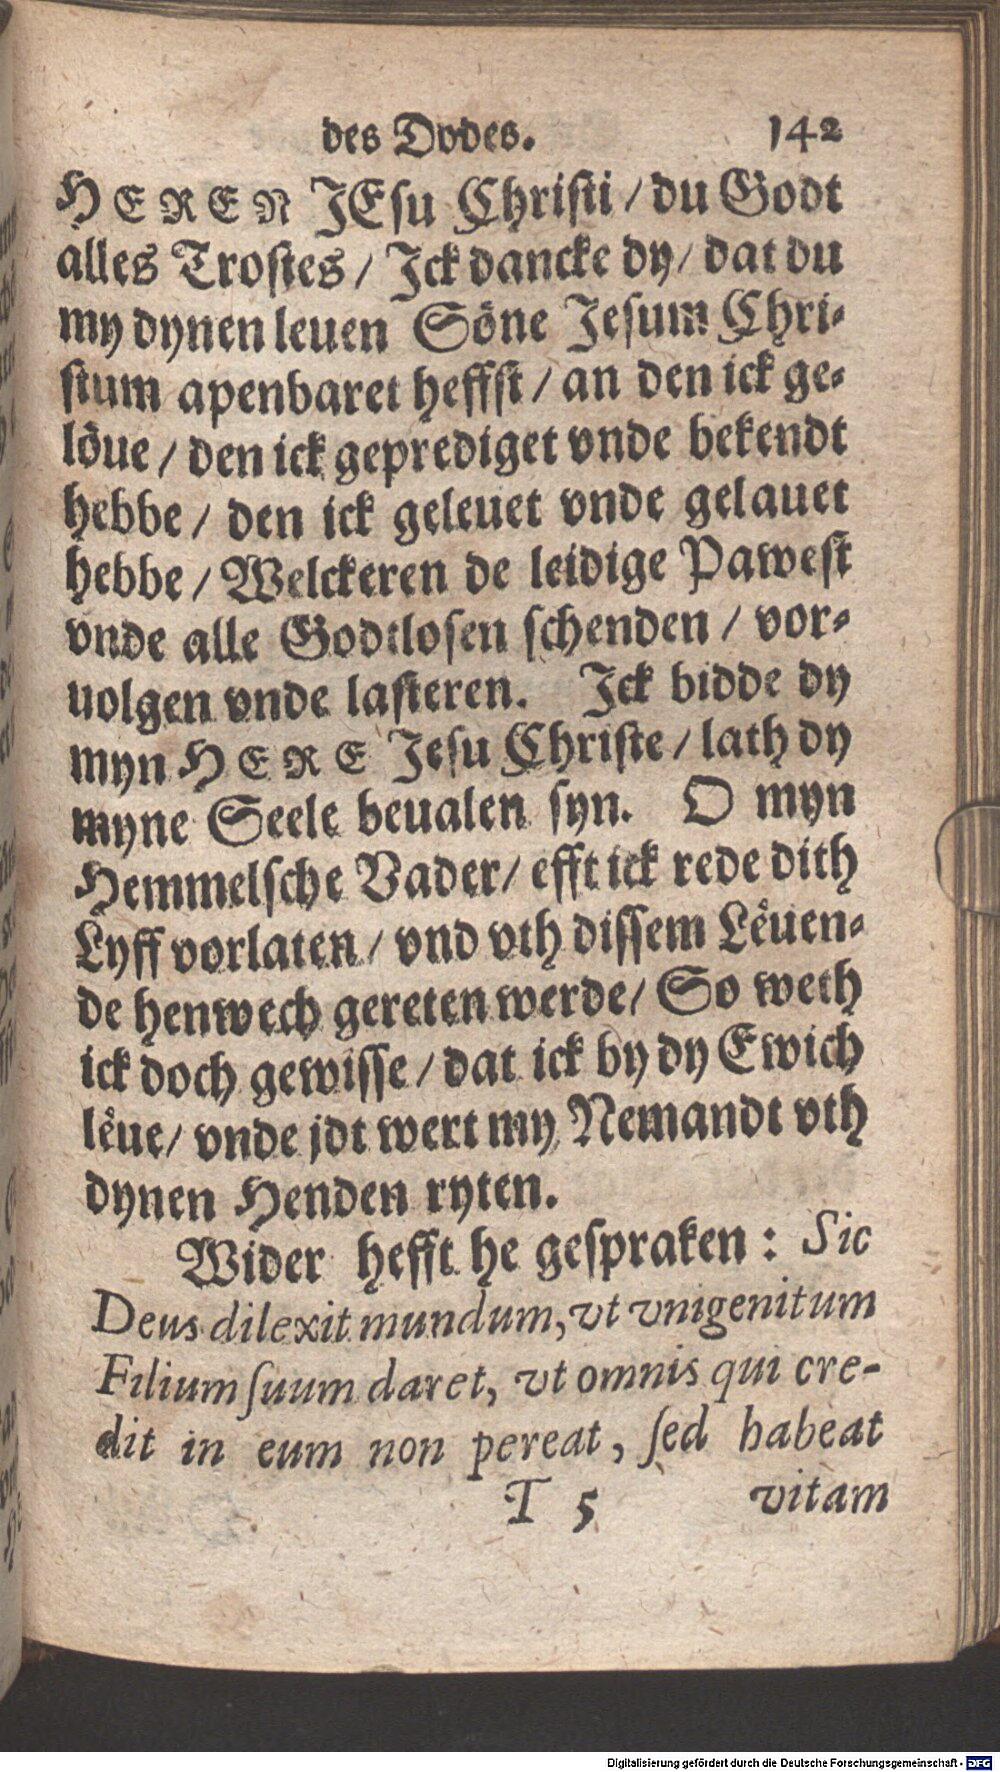 des Dodes. 142
HEREN JEsu Christi / du Godt
alles Trostes / Jck dancke dy / dat du
my dynen leuen Söne Jesum Chri-
stum apenbaret heffst / an den ick ge-
löue / den ick geprediget vnde bekendt
hebbe / den ick geleuet vnde gelauet
hebbe / Welckeren de leidige Pawest
vnde alle Godtlosen schenden / vor-
uolgen vnde lasteren. Jck bidde dy
myn HERE Jesu Christe / lath dy
myne Seele beualen syn. O myn
Hemmelsche Vader / efft ick rede dith
Lyff vorlaten / vnd vth dissem Lëuen-
de henwech gereten werde / So weth
ick doch gewisse / dat ick by dy Ewich
lëue / vnde jdt wert my Nemandt vth
dynen Henden ryten.
Wider hefft he gespraken : Sic
Deus dilexit mundum, vt vnigenitum
Filium suum daret, vt omnis qui cre-
dit in eum non pereat, sed habeat
T 5 vitam
Digitalisierung gefördert durch die Deutsche Forschungsgemeinschaft - DFG